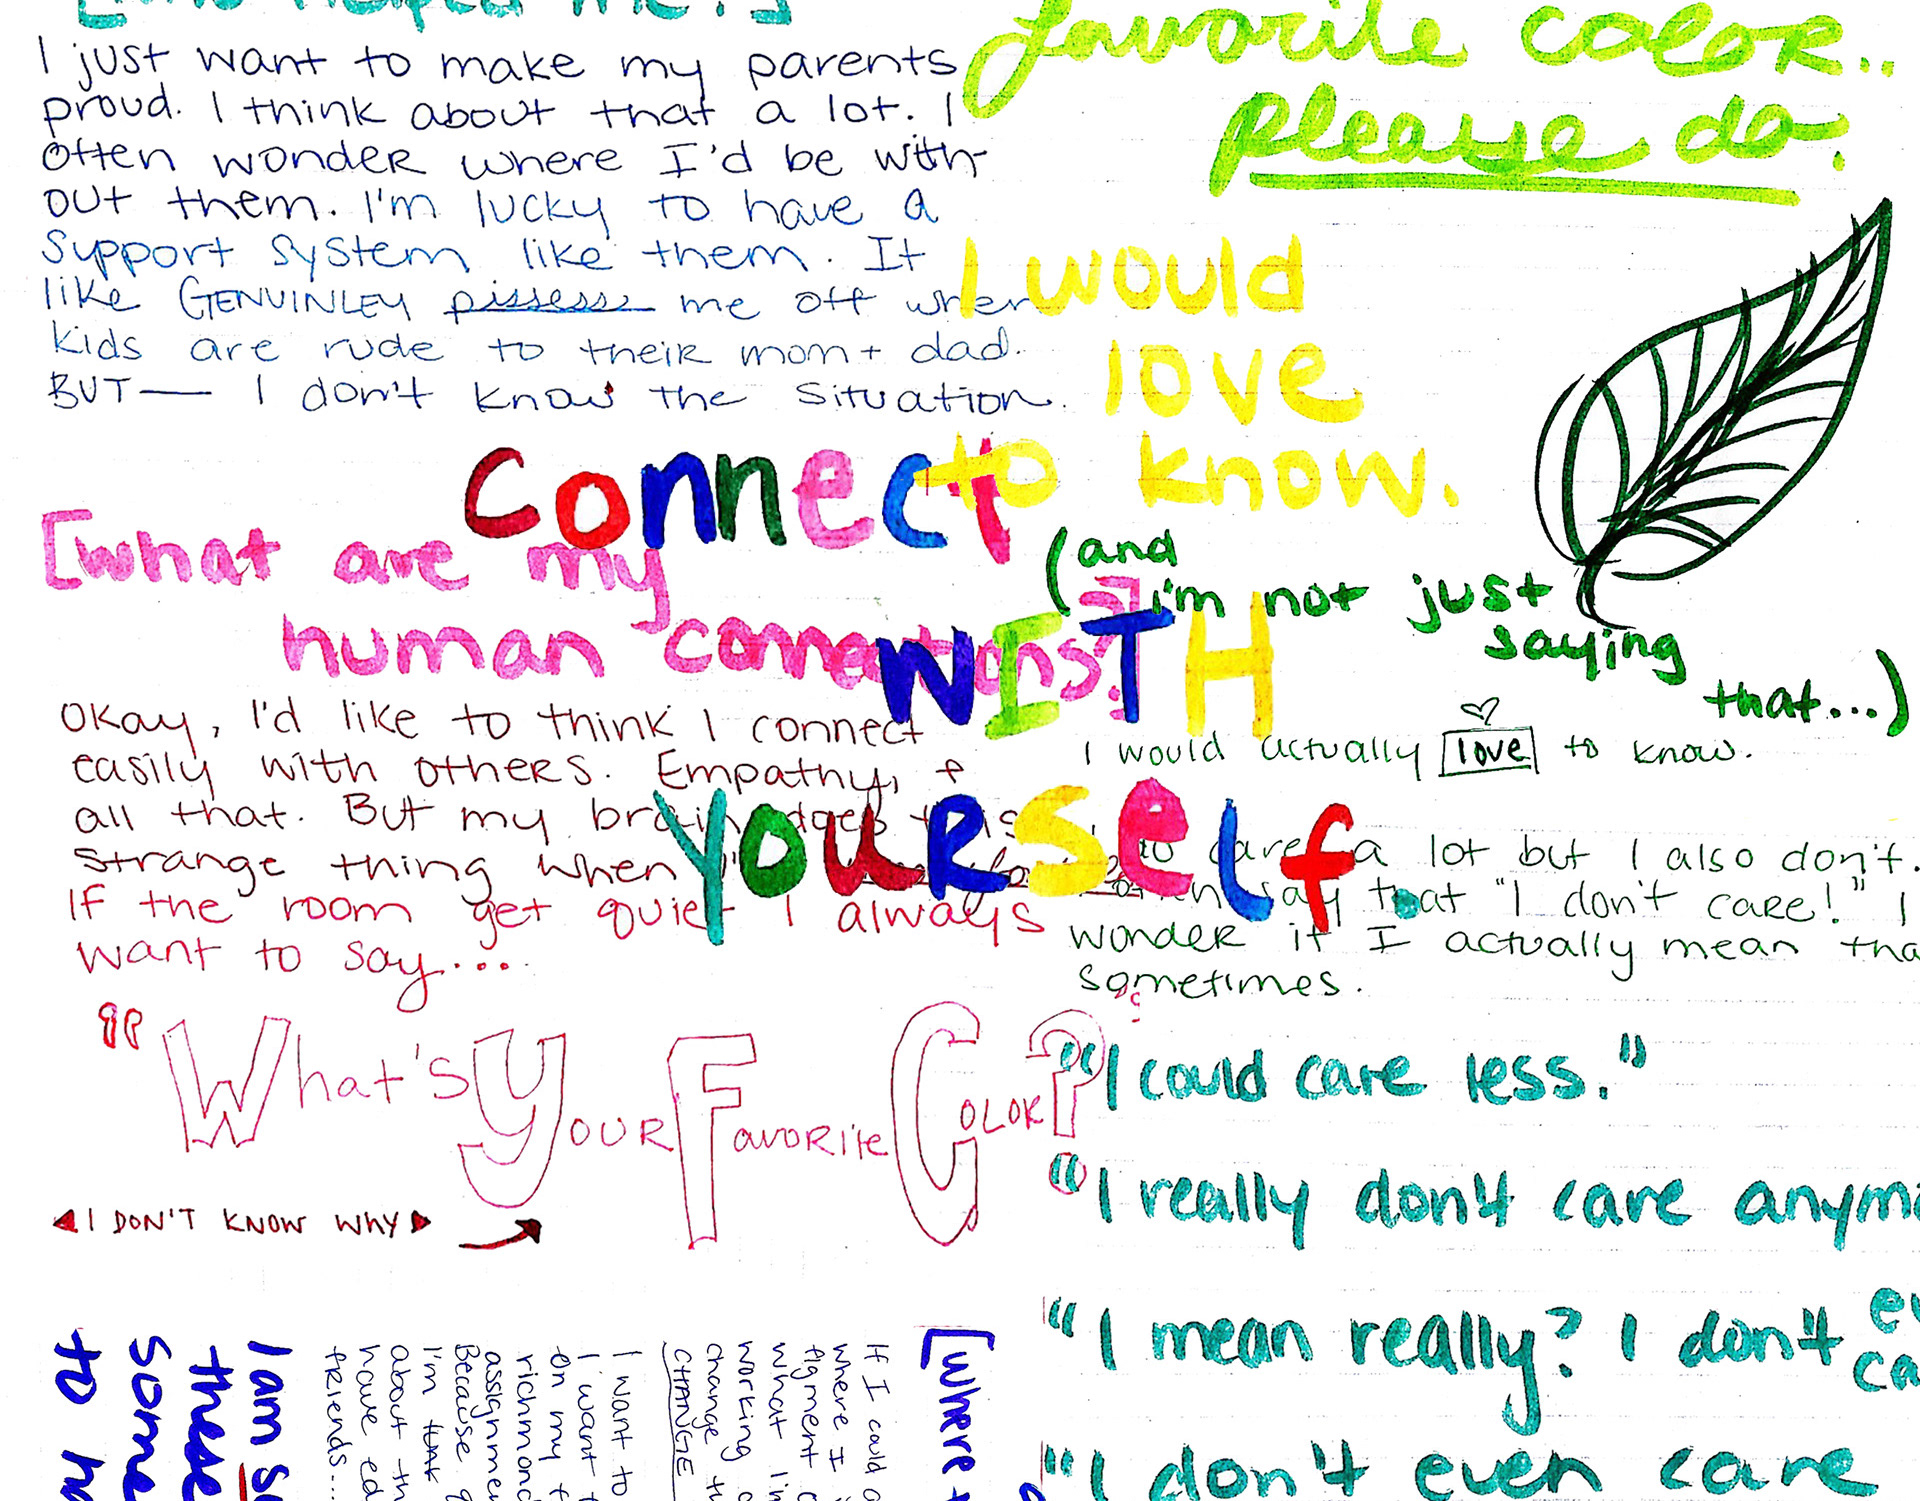 helped me?]
I just want to make my parents
proud. I think about that a lot. I
often wonder where I'd be with-
out them. I'm lucky to have a
support system like them. It
like GENUINLEY pissesss me off when
kids are rude to their mom + dad.
BUT— I don't know the situation.
connect
WITH
yourself.
[what are my
human connections?]
Okay, I'd like to think I connect
easily with others. Empathy, &
all that. But my brain does this
strange thing when
If the room get quiet I always
want to say....
"What's Your Favorite Color?
◄ I DON'T KNOW WHY ►
favorite color..
please do.
I would
love
to know.
(and
i'm not just
saying
that...)
I would actually love to know.
care a lot but I also don't.
say that "I don't care!" I
wonder if I actually mean tha
sometimes.
"I could care less."
"I really don't care anym
"I mean really? I don't ev
ca
"I don't even care
[where
If I could
where I
figment
what I'm
working
change
CHANGE
I want to
I want
on my
richmond
assignmen
Because
I'm
about th
have ed
friends...
I am s
these
some
to ha